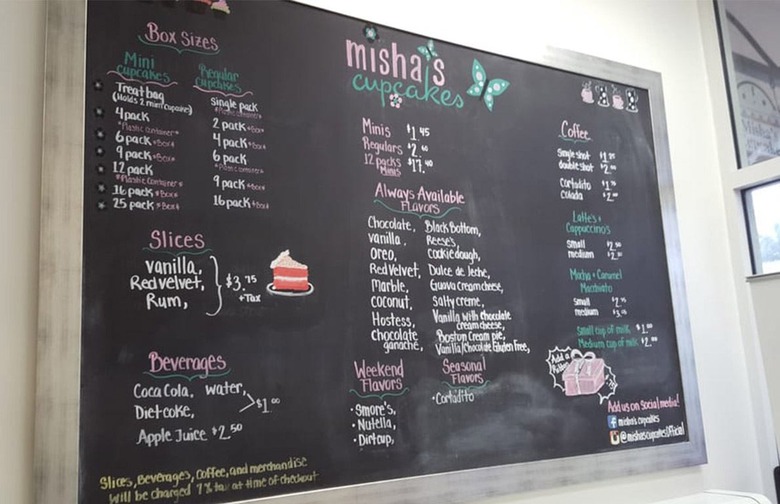 misha's
cupcakes
Box Sizes
Mini
cupcakes
Treat bag
(Holds 2 mini cupcake)
4 pack
*Plastic container*
6 pack *Box*
9 pack *Box*
12 pack
*Plastic Container*
16 pack *Box*
25 pack *Box*
Regular
cupcakes
Single pack
2 pack *Box*
4 pack *Box*
6 pack
9 pack *Box*
16 pack *Box*
Slices
Vanilla,
Red velvet,
Rum,
$3.75
+Tax
Beverages
Coca Cola, water,
Diet coke,
$1.00
Apple Juice $2.50
Slices, Beverages, Coffee, and merchandise
will be charged 7% tax at time of checkout
Minis $1.45
Regulars
12 packs
Minis
Always Available
Flavors
Chocolate,
vanilla,
Oreo,
Red Velvet,
Marble,
coconut,
Hostess,
Chocolate
ganache,
Black Bottom,
Reese's,
Cookie dough,
Dulce de leche,
Guava cream cheese,
Salty creme,
Vanilla with chocolate
cream cheese,
Boston Cream pie,
Vanilla/Chocolate Gluten Free,
Weekend
Flavors
• Smore's,
• Nutella,
• Dirt cup,
Seasonal
Flavors
• Cortadito
Coffee
Single shot
double shot
Cortadito
Colada
Latte's +
Cappuccino's
Small
medium
Mocha + Caramel
Macchiato
Small
medium
Small cup of milk $1.00
Medium cup of milk $2.00
Add a
Add us on Social media!
misha's cupcakes
@mishascupcakesofficial